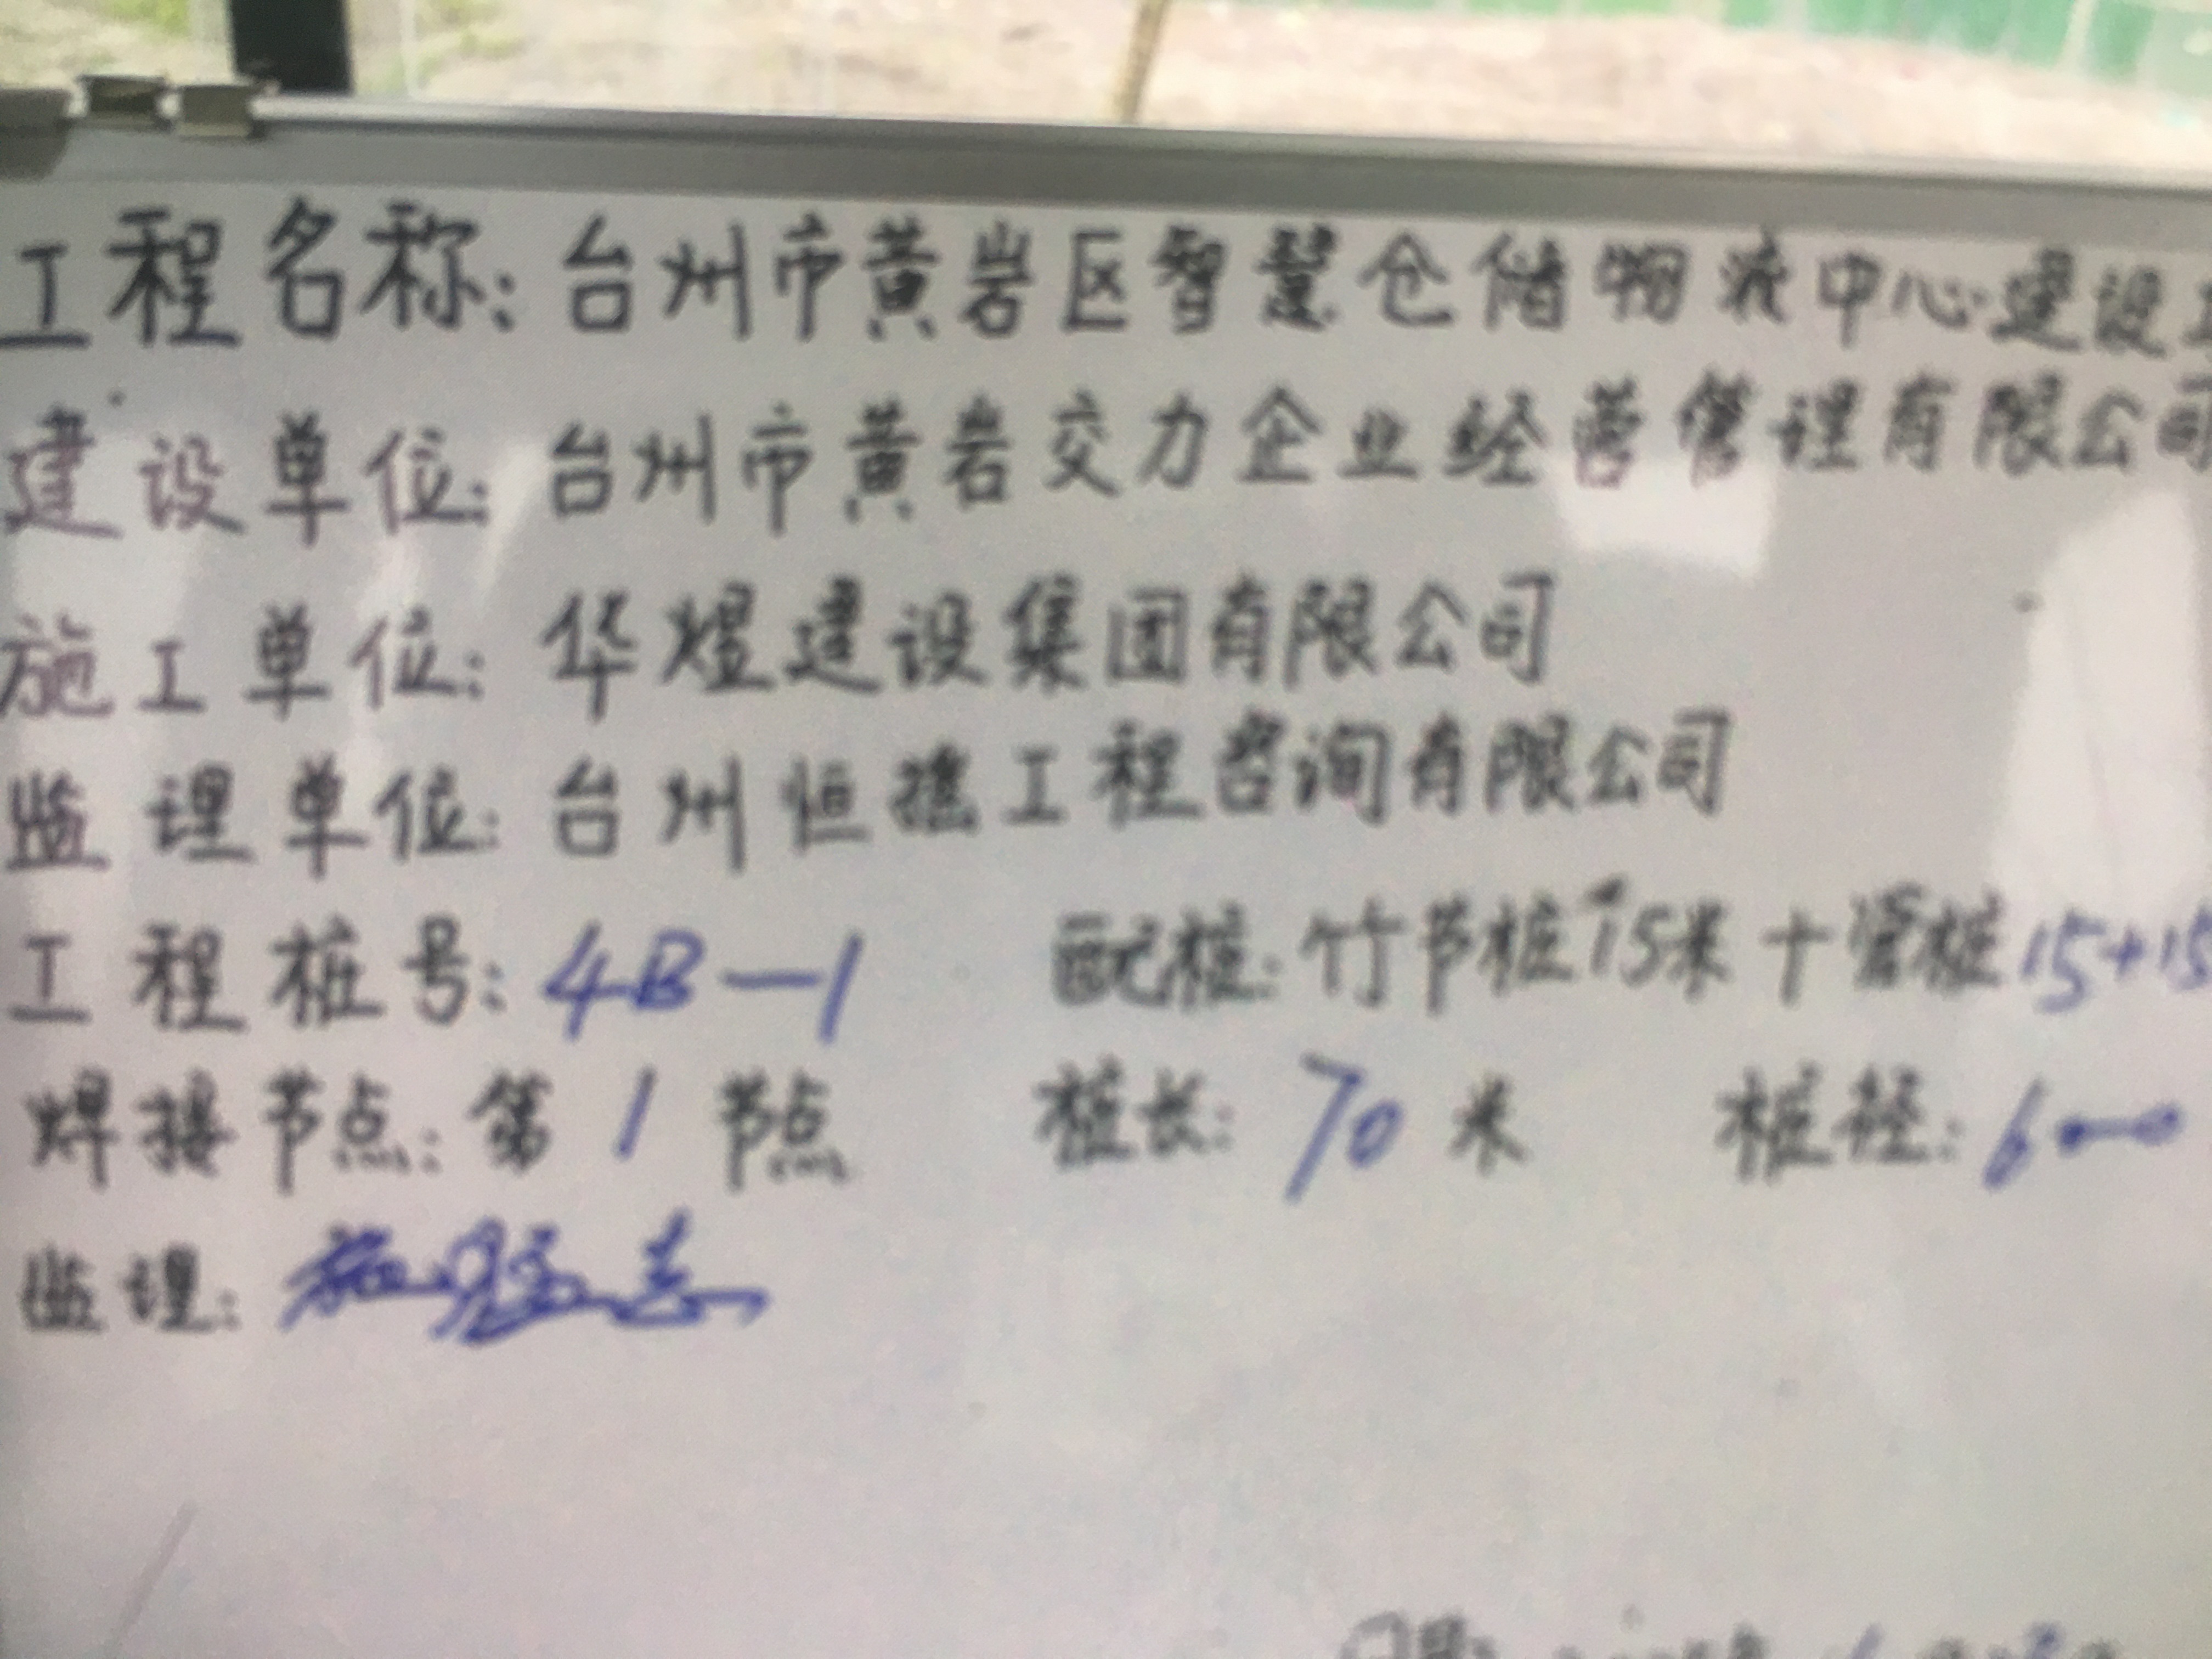 工程名称：台州市黄岩区智慧仓储物流中心建设
建设单位：台州市黄岩交力企业经营管理有限公司
施工单位：华煜建设集团有限公司
监理单位：台州恒摇工程咨询有限公司
工程桩号：4B-1 配桩：竹节桩15米+管桩15+15
焊接节点：第1节点 桩长：70米 桩径：600
监理：